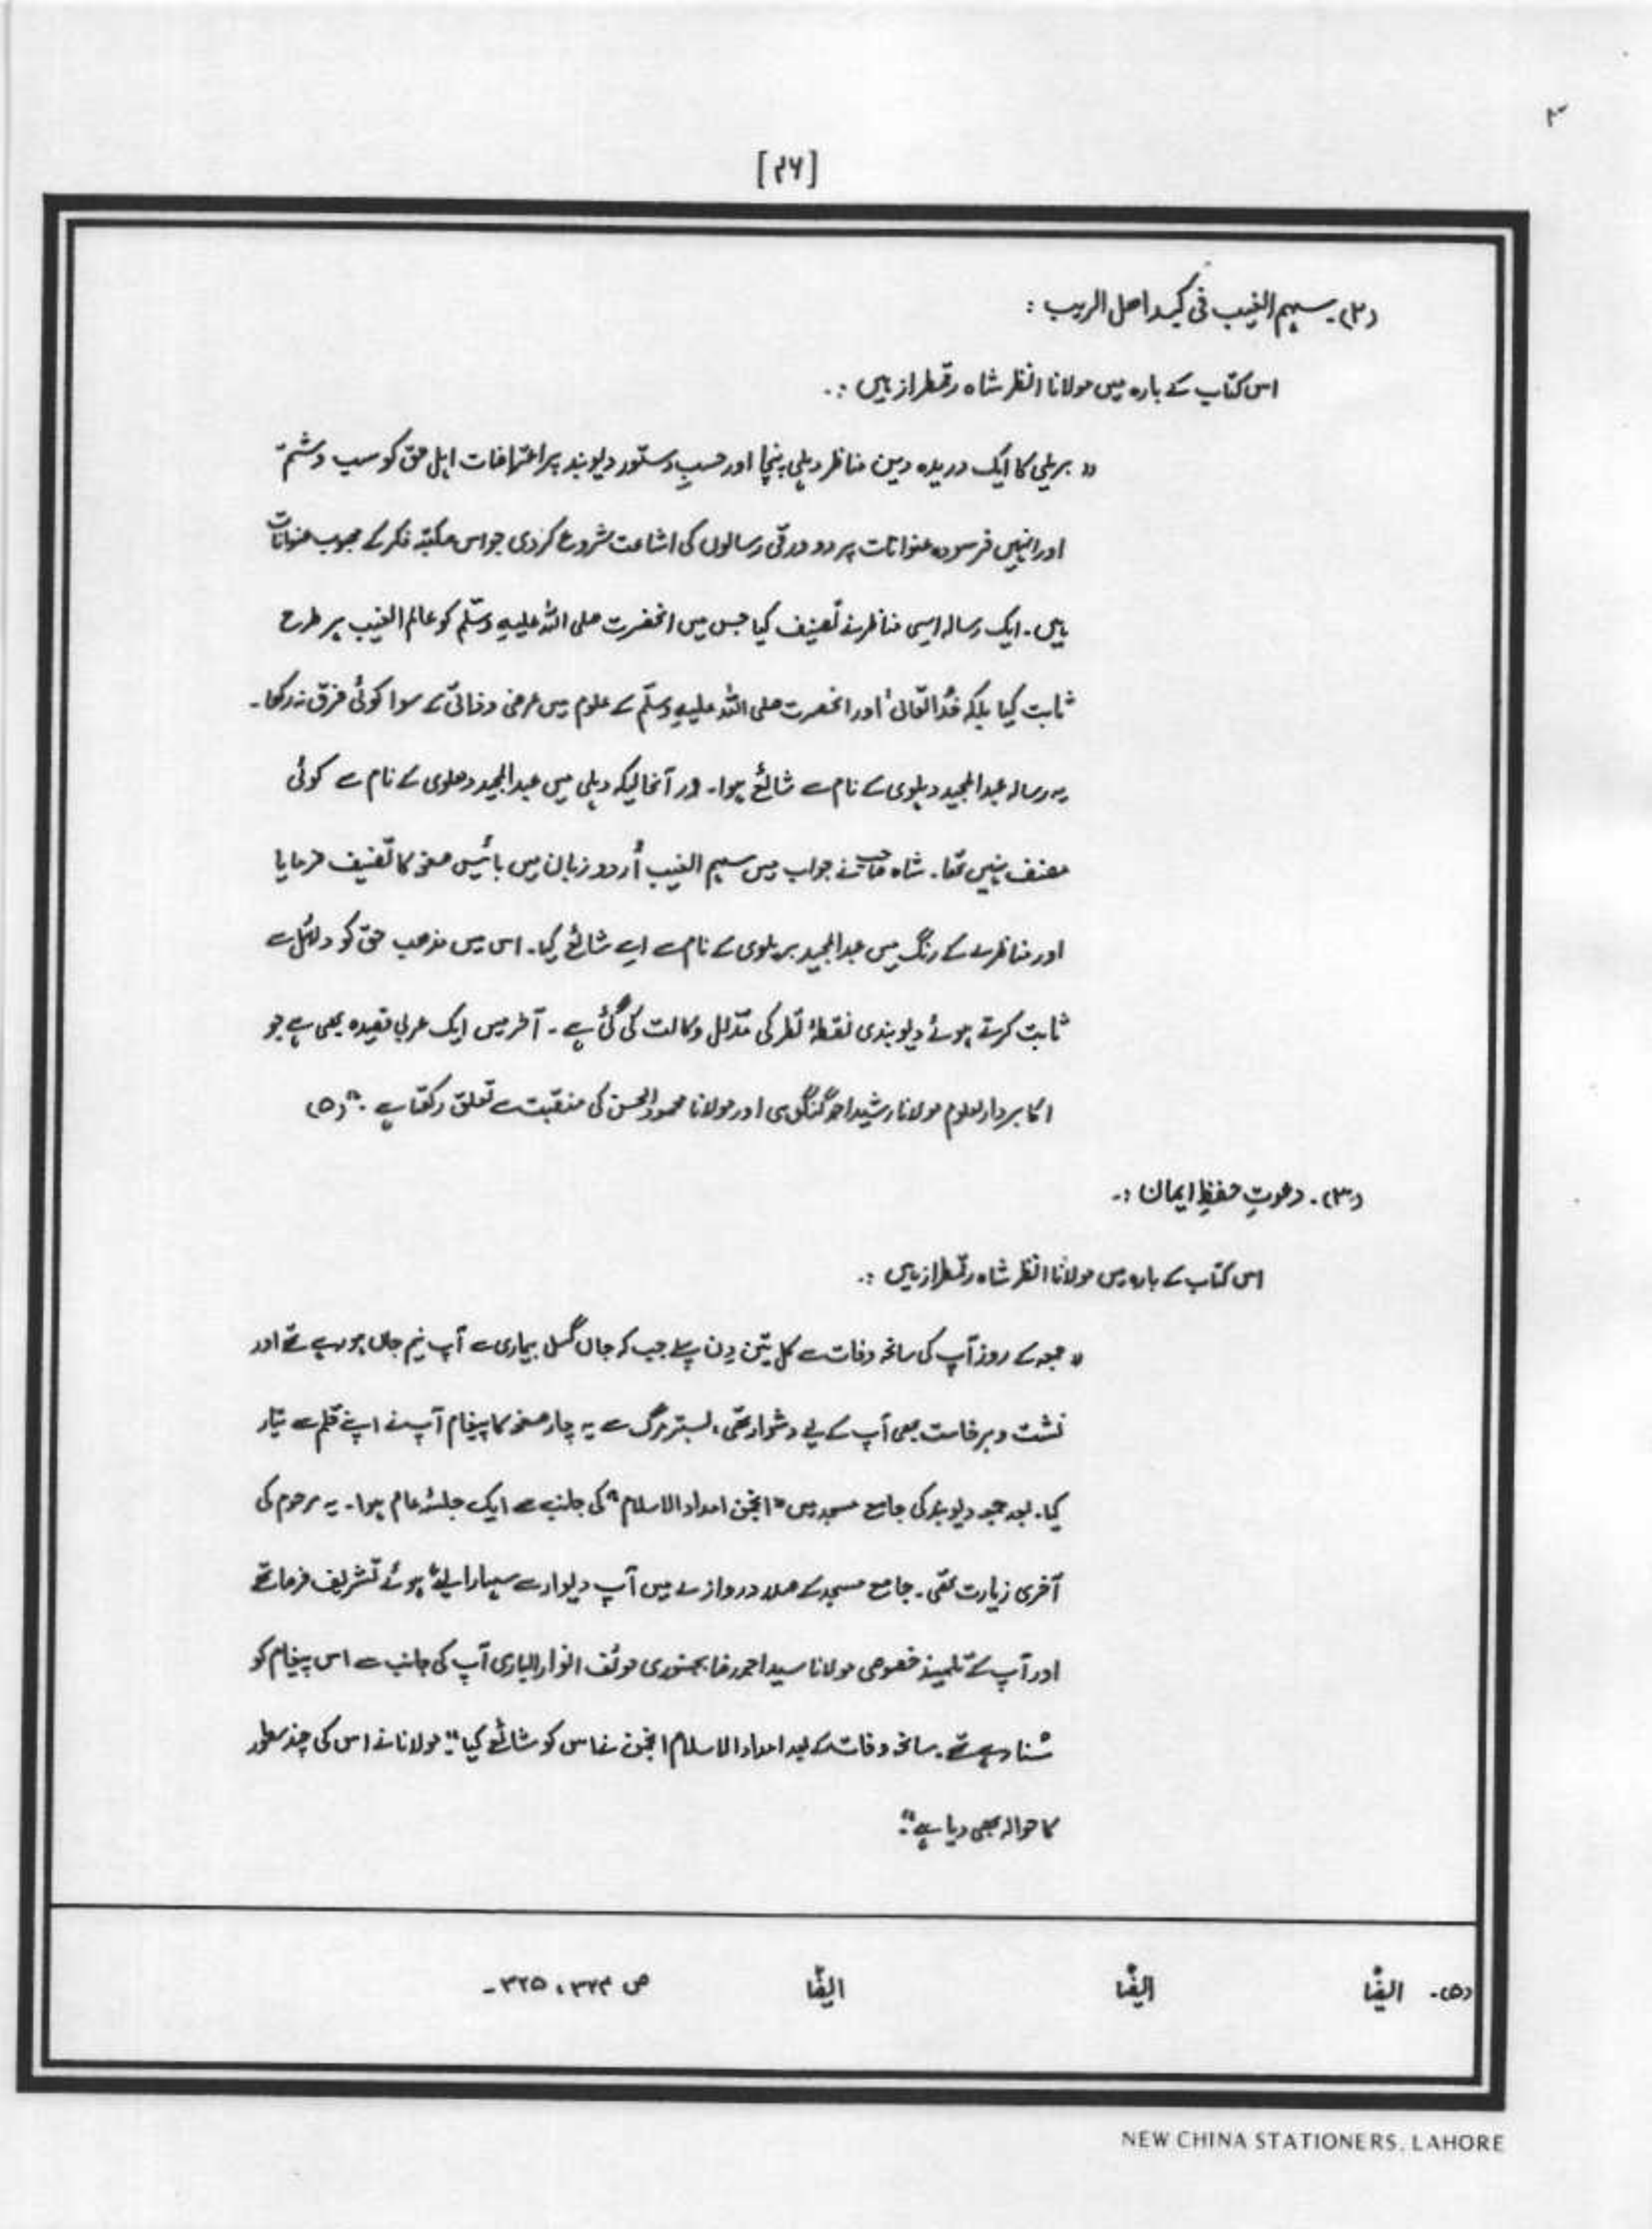 [۴۶]
(۲)۔ سہم الغیب فی کید اھل الریب :
اس کتاب کے بارہ میں مولانا انظر شاہ رقمطراز ہیں :۔
" بریلی کا ایک دریدہ دہن مناظر دہلی پہنچا اور حسبِ دستور دیوبند پر اعتراضات اہل حق کو سب و شتم
اور انہیں فرسودہ عنوانات پر دو ورقی رسالوں کی اشاعت شروع کردی جو اس مکتبہ فکر کے محبوب عنوانات
ہیں۔ ایک رسالہ اسی مناظر نے تصنیف کیا جس میں آنحضرت صلی اللہ علیہ وسلّم کو عالم الغیب ہر طرح
ثابت کیا بلکہ خُدا تعالیٰ اور آنحضرت صلی اللہ علیہ وسلّم کے علوم میں عرضی و ذاتی کے سوا کوئی فرق نہ رکھا۔
یہ رسالہ عبدالمجید دہلوی کے نام سے شائع ہوا۔ در آنحالیکہ دہلی میں عبدالمجید دھلوی کے نام سے کوئی
مصنف نہیں تھا۔ شاہ صاحب نے جواب میں سہم الغیب اُردو زبان میں بائیس صفحہ کا تصنیف فرمایا
اور مناظرے کے رنگ میں عبدالمجید بریلوی کے نام سے اسے شائع کیا۔ اس میں مذھب حق کو دلائل سے
ثابت کرتے ہوئے دیوبندی نقطۂ نظر کی مدّلل وکالت کی گئی ہے۔ آخر میں ایک عربی قصیدہ بھی ہے جو
اکابر دارلعلوم مولانا رشید احمد گنگوہی اور مولانا محمود الحسن کی منقبت سے تعلق رکھتا ہے ۔" (۵)
(۳)۔ دعوتِ حفظِ ایمان :۔
اس کتاب کے بارہ میں مولانا انظر شاہ رقمطراز ہیں :۔
" جمعہ کے روز آپ کی سانحہ وفات سے کل تین دِن پہلے جب کہ جاں گسل بیماری سے آپ نیم جاں ہو رہے تھے اور
نشت و برخاست بھی آپ کے لیے دشوار تھی، بستر مرگ سے یہ چار صفحہ کا پیغام آپ نے اپنے قلم سے تیار
کیا۔ بعد جمعہ دیوبند کی جامع مسجد میں "انجمن امداد الاسلام" کی جانب سے ایک جلسۂ عام ہوا۔ یہ مرحوم کی
آخری زیارت تھی۔ جامع مسجد کے صدر دروازے میں آپ دیوار سے سہارا لیے ہوئے تشریف فرما تھے
اور آپ کے تلمیذ خصوصی مولانا سید احمد رضا بجنوری مولف انوار الباری آپ کی جانب سے اس پیغام کو
سُنا رہے تھے۔ سانحہ وفات کے بعد امداد الاسلام انجمن نے اس کو شائع کیا"۔ مولانا نے اس کی چند سطور
کا حوالہ بھی دیا ہے"۔
(۵)۔ ایضًا ایضًا ایضًا ص ۳۲۴، ۳۲۵۔
NEW CHINA STATIONERS, LAHORE